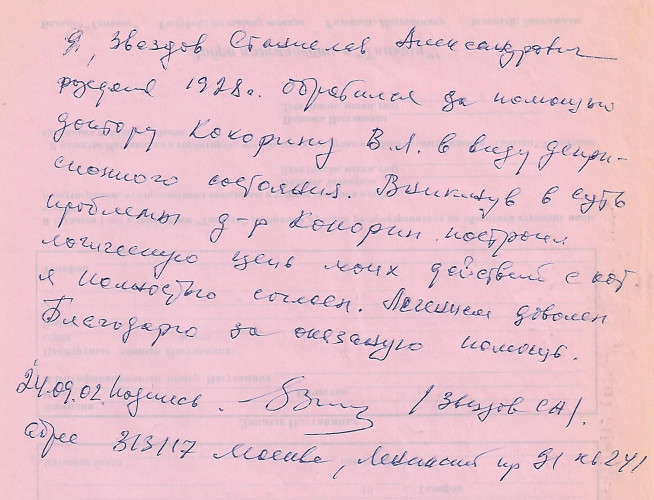 Я, Звездов Станислав Александрович
рождения 1928г. обратился за помощью
доктору Кокорину В.Л. в виду депри-
сионного состояния. Вникнув в суть
проблемы д-р Кокорин построил
логическую цепь моих действий с кот.
я полностью согласен. Лечением доволен
Благодарю за оказаную помощь.
24.09.02. Подпись. / Звездов СА/.
адрес 313117 Москва, Ленинский пр 91 кв 241